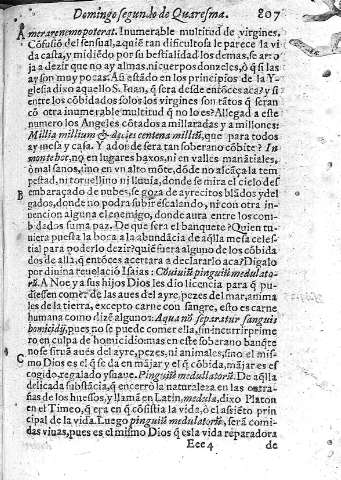 Domingo segundo de Quaresma. 807
A merare nemo poterat. Inumerable multitud de virgines.
Cõfusiõ del sensual, aquiẽ tan dificultosa le parece la vi
da casta, y midiẽdo por su bestialidad los demas, se arro
ja a dezir que no ay almas, ni cuerpos donzeles, ò q̃ si las
ay son muy pocas. Aũ estãdo en los principios de la Y-
glesia dixo aquello S. Iuan, q̃ sera desde entõces aca? y si
entre los cõbidados solos los virgines son tãtos q̃ seran
cõ otra inumerable multitud q̃ no lo es? Allegad a este
numero los Angeles cõtados a millaradas y a millones:
Millia millium & decies centena milliũ, que para todos
ay mesa y casa. Y adõ de sera tan soberano cõbite? In
monte hoc, no en lugares baxos, ni en valles manãtiales,
ò mal sanos, sino en vn alto mõte, dõde no alcãça la tem
pestad, ni toruellino ni lluuia, donde se mira el cielo des
B embaraçado de nubes, se goza de ayrecitos blãdos y del
gados, donde no podra subir escalando, ni con otra in-
uencion alguna el enemigo, donde aura entre los com-
bidados suma paz. De que sera el banquete? Quien tu-
uiera puesta la boca a la abundãcia de aq̃lla mesa celes-
tial para poderlo dezir? quiẽ fuera alguno de los cõbida
dos de allà, q̃ entõces acertara a declararlo aca? Digalo
por diuina reuelaciõ Isaias: Cõuiuiũ pinguiũ medulato-
rũ. A Noe y a sus hijos Dios les dio licencia para q̃ pu-
diessen comer de las aues del ayre, pezes del mar, anima
les de la tierra, excepto carne con sangre, esto es carne
humana como dize algunos: Aqua nõ separatur sanguis
homicidij, pues no se puede comer ella, sin incurrir prime
ro en culpa de homicidio: mas en este soberano banq̃te
no se siruã aues del ayre, pezes, ni animales, sino el mis-
C mo Dios es el q̃ se da en mãjar y el q̃ cõbida, mãjar es es
cogido, regalado y suaue. Pinguiũ medullatorũ. De aq̃lla
delicada substãcia, q̃ encerrò la naturaleza en las entra-
ñas de los huessos, y llamã en Latin, medula, dixo Platon
en el Timeo, q̃ era en q̃ cõsistia la vida, ò el assiẽto prin
cipal de la vida. Luego pinguiũ medulatorũ, serã comi-
das viuas, pues es el mismo Dios q̃ es la vida reparadora
Eee 4 de